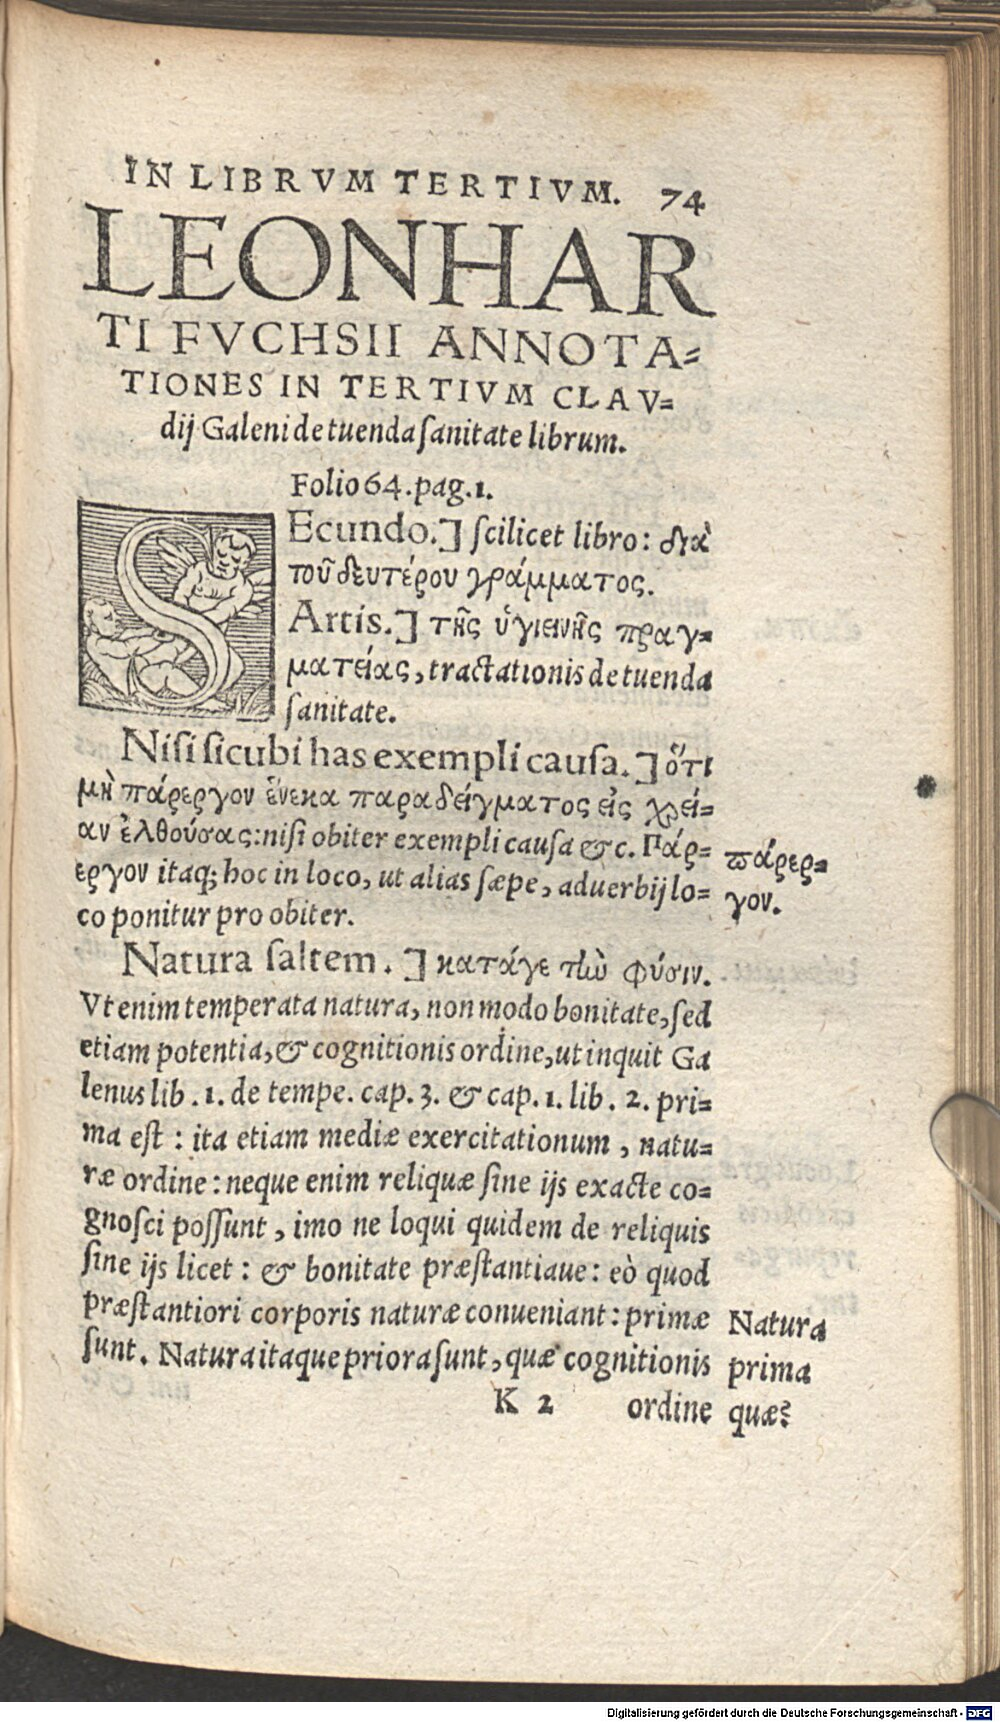 IN LIBRVM TERTIVM. 74
LEONHAR
TI FVCHSII ANNOTA-
TIONES IN TERTIVM CLAV-
dij Galeni de tuenda ſanitate librum.
Folio 64. pag. 1.
SEcundo.] ſcilicet libro: διὰ
τοῦ δευτέρου γράμματος.
Artis.] τῆς ὑγιεινῆς πραγ-
ματείας, tractationis de tuenda
ſanitate.
Niſi ſicubi has exempli cauſa.] ὅτι
μὴ πάρεργον ἕνεκα παραδείγματος εἰς χρεί-
αν ἐλθούσας: niſi obiter exempli cauſa &c. Πάρ-
εργον itaq; hoc in loco, ut alias ſæpe, aduerbij lo-
co ponitur pro obiter.
πάρερ-
γον.
Natura ſaltem.] κατάγε τὼ φύσιν.
Vt enim temperata natura, non modo bonitate, ſed
etiam potentia, & cognitionis ordine, ut inquit Ga
lenus lib. 1. de tempe. cap. 3. & cap. 1. lib. 2. pri-
ma eſt: ita etiam mediæ exercitationum, natu-
ræ ordine: neque enim reliquæ ſine ijs exacte co-
gnoſci poſſunt, imo ne loqui quidem de reliquis
ſine ijs licet: & bonitate præſtantiaue: eò quod
præſtantiori corporis naturæ conueniant: primæ
ſunt. Natura itaque priora ſunt, quæ cognitionis
Natura
prima
quæ?
K 2 ordine
Digitalisierung gefördert durch die Deutsche Forschungsgemeinschaft - DFG